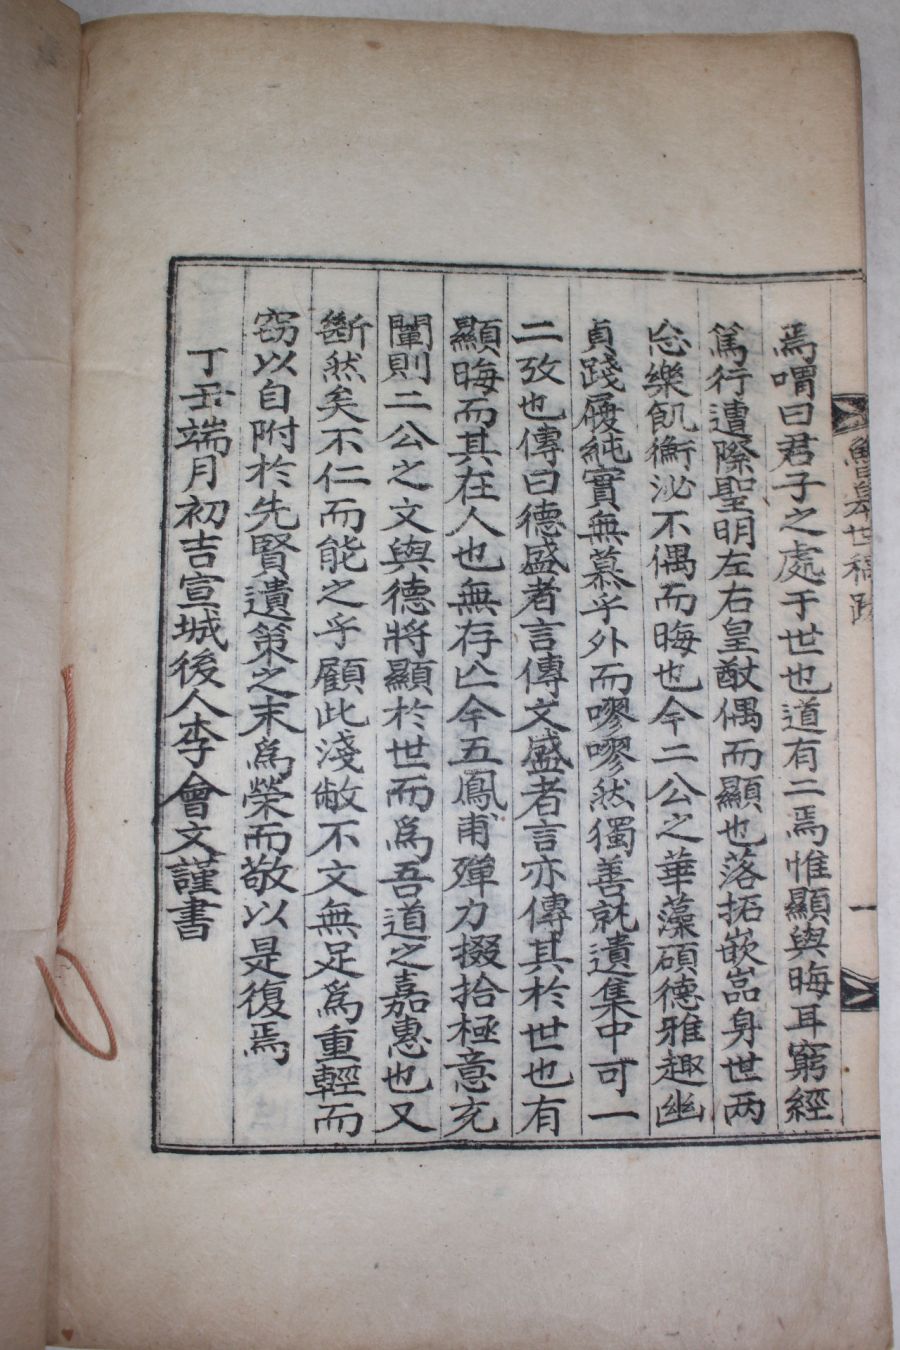 焉喟曰君子之處于世也道有二焉惟顯與晦耳窮經
篤行遭際聖明左右皇猷偶而顯也落拓嵚嵓身世两
忘樂飢衡泌不偶而晦也今二公之華藻碩德雅趣幽
貞踐履純實無慕乎外而嘐嘐然獨善就遺集中可一
二攷也傳曰德盛者言傳文盛者言亦傳其於世也有
顯晦而其在人也無存亾今五鳳甫殫力掇拾極意充
闡則二公之文與德將顯於世而爲吾道之嘉惠也又
斷然矣不仁而能之乎顧此淺敝不文無足爲重輕而
窃以自附於先賢遺策之末爲榮而敬以是復焉
丁丑端月初吉宣城後人李會文謹書
世稿跋
一